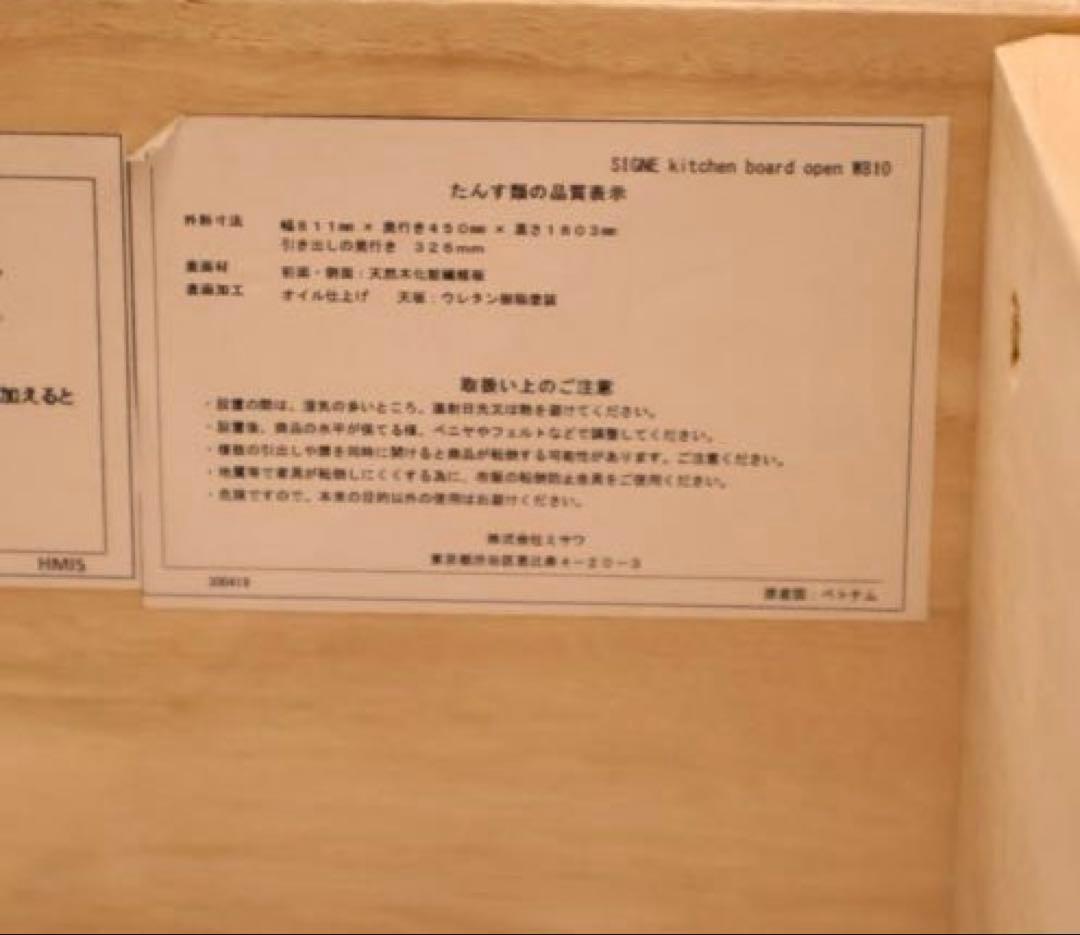 SIGNE kitchen board open W810
たんす類の品質表示
外形寸法 幅811mm × 奥行き450mm × 高さ1803mm
引き出しの奥行き 326mm
表面材 前面・側面：天然木化粧繊維板
表面加工 オイル仕上げ 天板：ウレタン樹脂塗装
取扱い上のご注意
・設置の際は、湿気の多いところ、直射日光又は熱を避けてください。
・設置後、商品の水平が保てる様、ベニヤやフェルトなどで調整してください。
・複数の引出しや扉を同時に開けると商品が転倒する可能性があります。ご注意ください。
・地震等で家具が転倒しにくくする為に、市販の転倒防止金具をご使用ください。
・危険ですので、本来の目的以外の使用はお避けください。
株式会社ミサワ
東京都渋谷区恵比寿4-20-3
原産国：ベトナム
加えると
HMIS